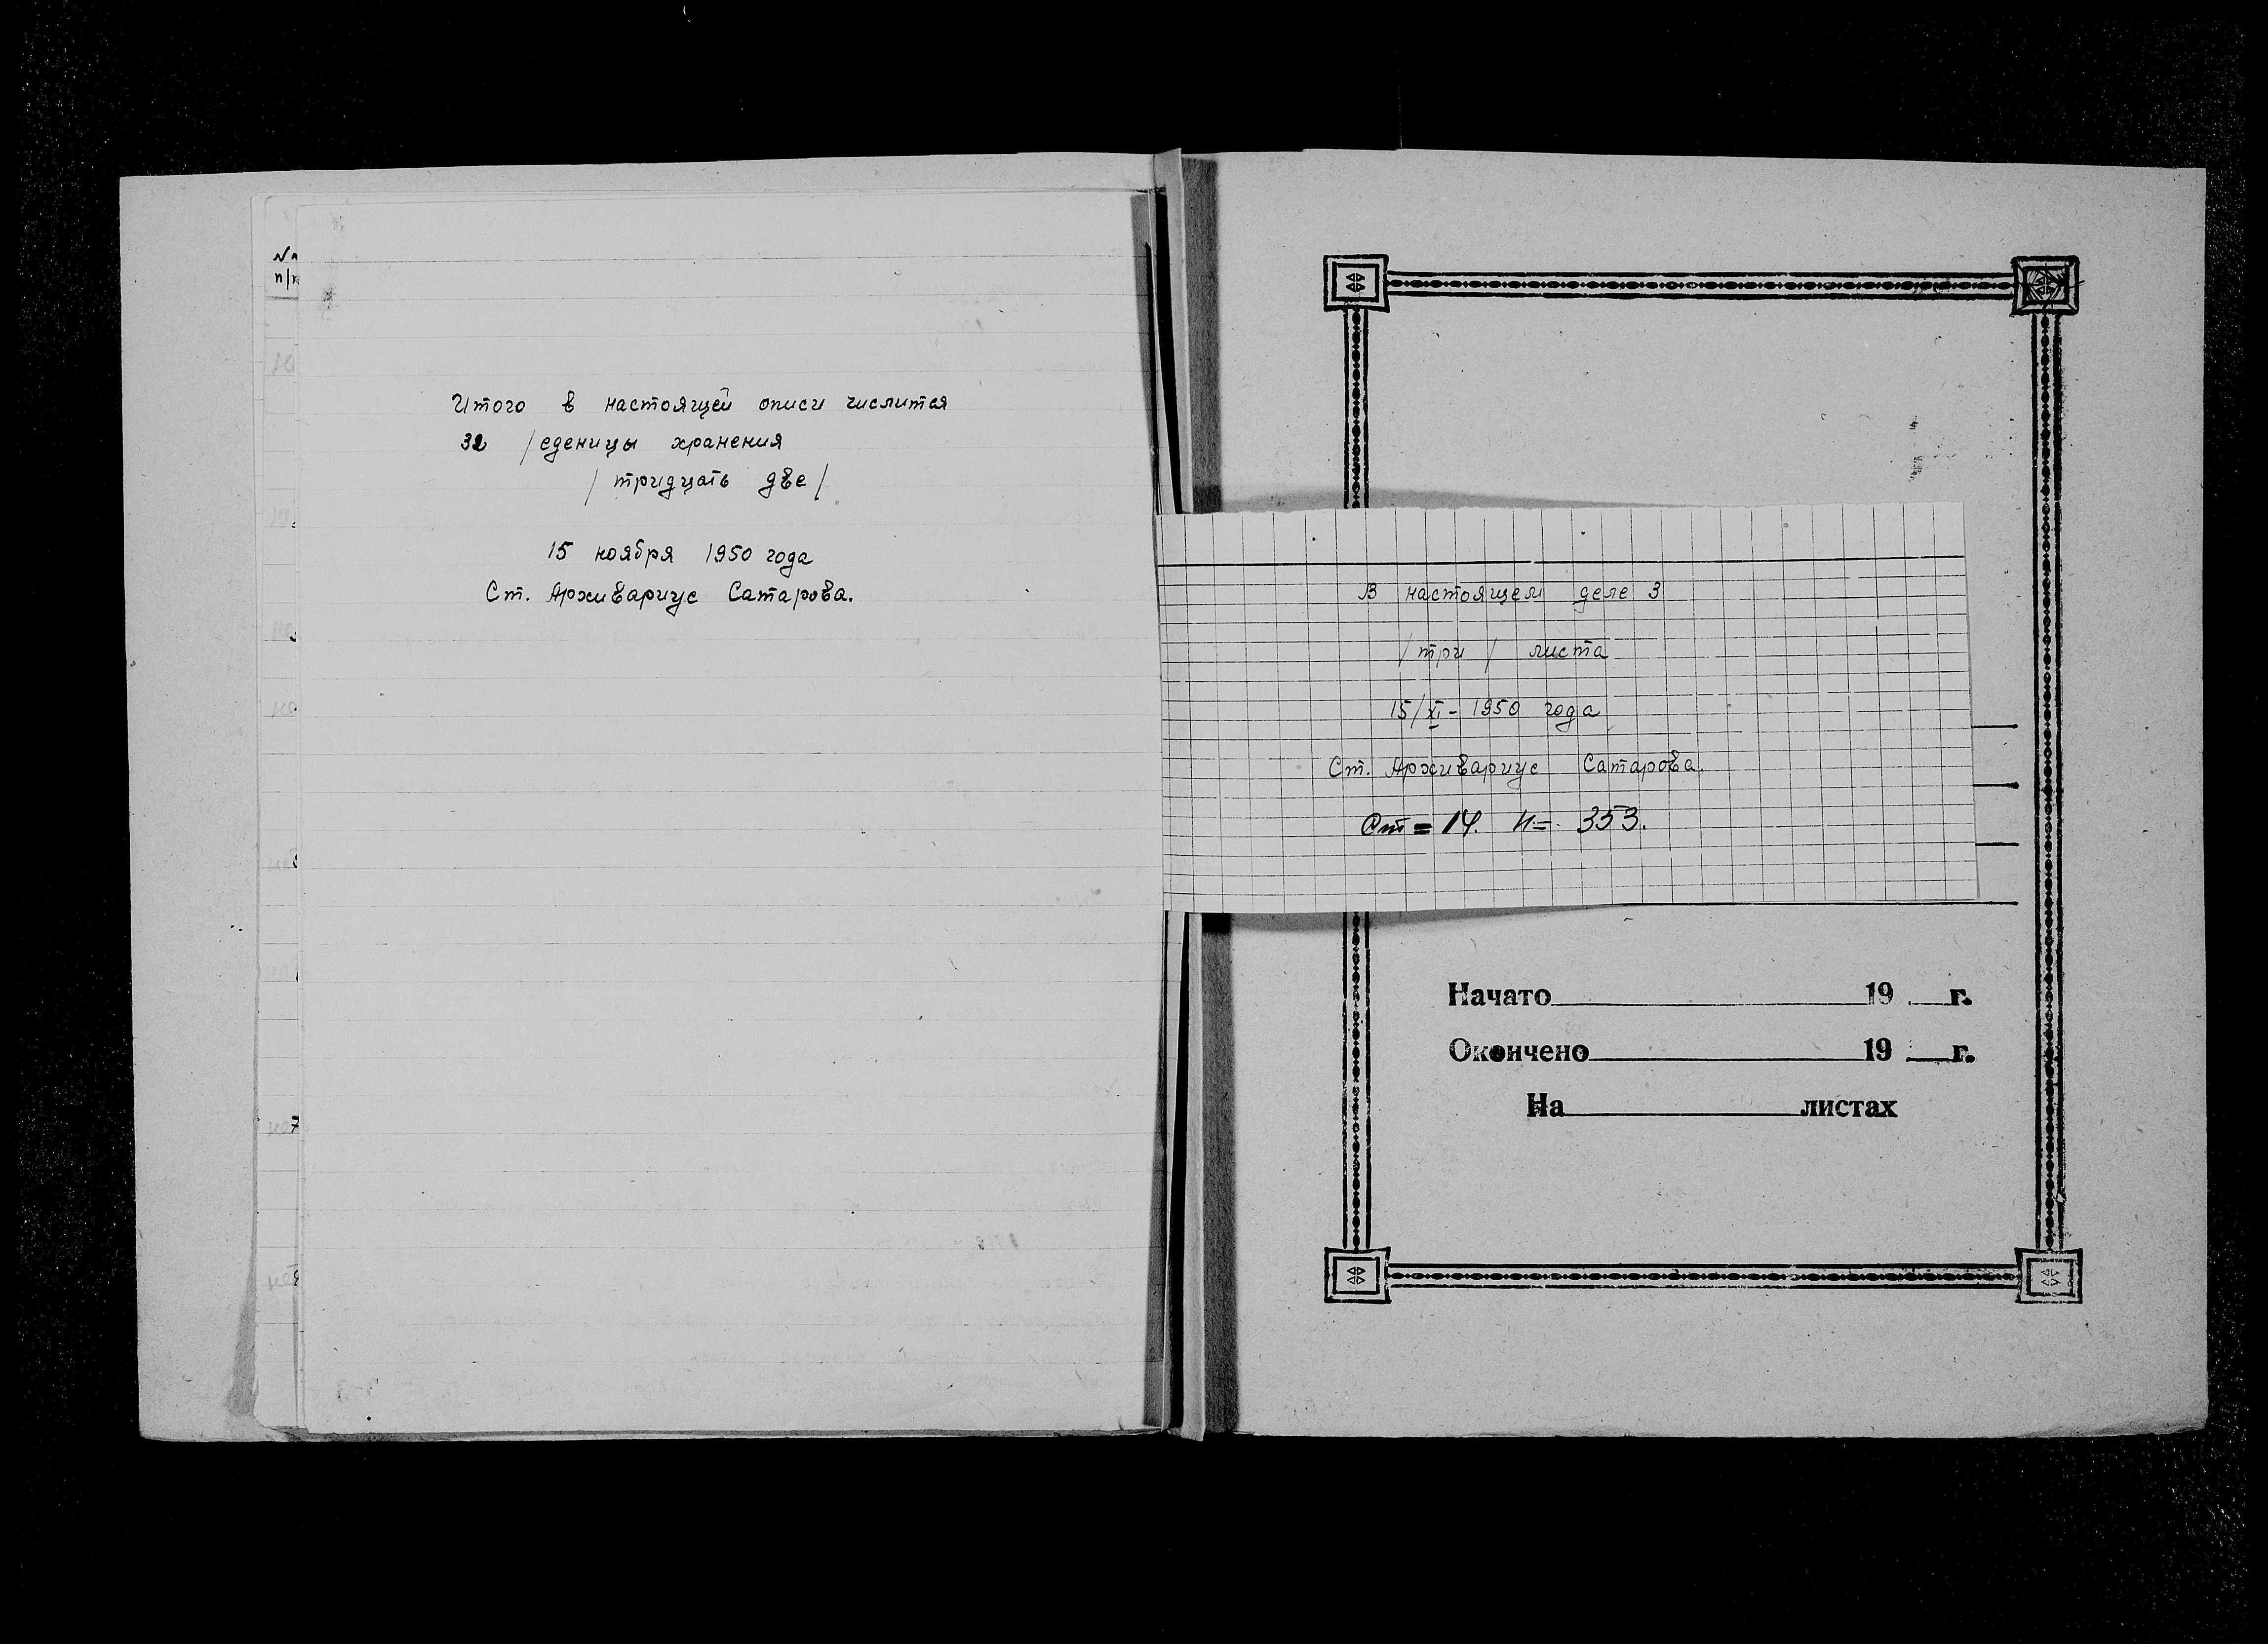 Итого в настоящей описи числится
32 /еденицы хранения
/ тридцать две /
15 ноября 1950 года
Ст. Архивариус Сатарова.
п/п
В настоящем деле 3
/ три / листа
15/XI - 1950 года
Ст. Архивариус Сатарова.
Ст = 14. н = 353.
Начато 19 г.
Окончено 19 г.
На листах